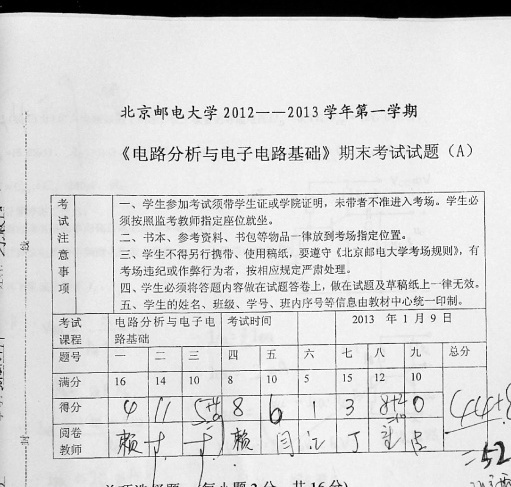 北京邮电大学 2012——2013 学年第一学期
《电路分析与电子电路基础》期末考试试题（A）
考试注意事项
一、学生参加考试须带学生证或学院证明，未带者不准进入考场。学生必
须按照监考教师指定座位就坐。
二、书本、参考资料、书包等物品一律放到考场指定位置。
三、学生不得另行携带、使用稿纸，要遵守《北京邮电大学考场规则》，有
考场违纪或作弊行为者，按相应规定严肃处理。
四、学生必须将答题内容做在试题答卷上，做在试题及草稿纸上一律无效。
五、学生的姓名、班级、学号、班内序号等信息由教材中心统一印制。
考试课程 电路分析与电子电路基础 考试时间 2013 年 1 月 9 日
题号 一 二 三 四 五 六 七 八 九 总分
满分 16 14 10 8 10 5 15 12 10
得分 4 11 5+4 8 6 1 3 8+2 0 44+8
=52
阅卷教师
每小题 2 分，共 16 分)